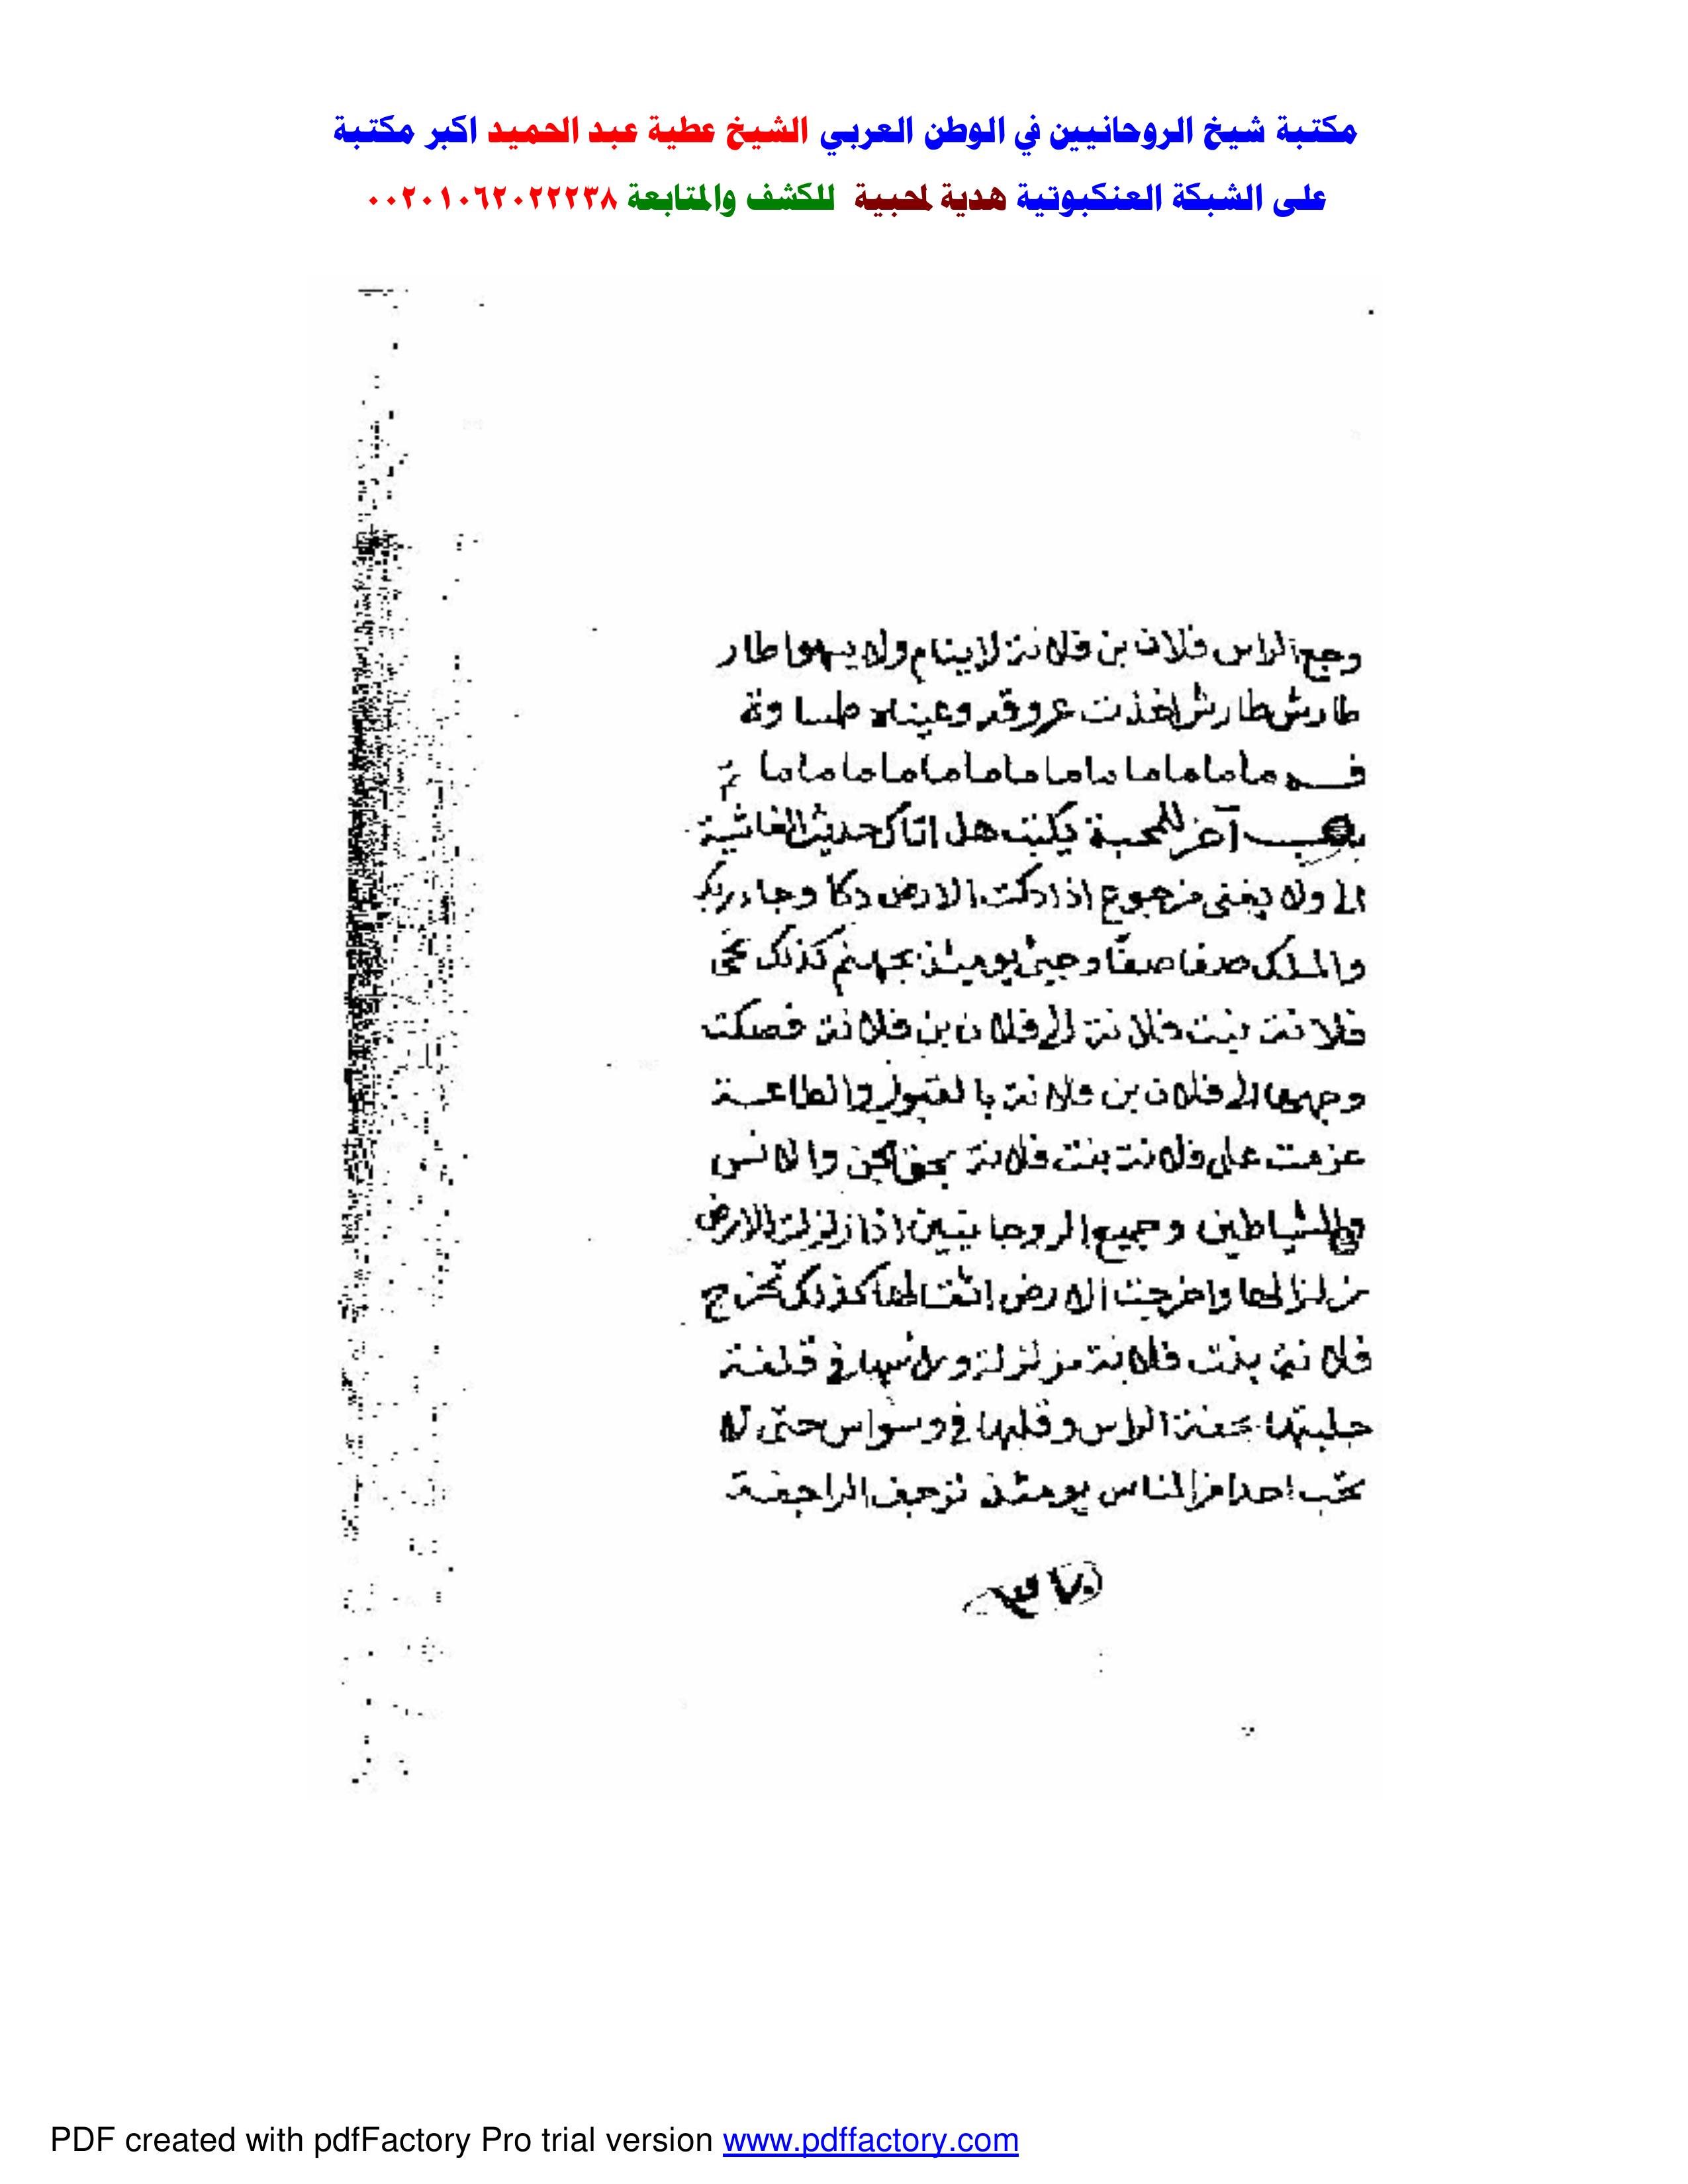 مكتبة شيخ الروحانيين في الوطن العربي الشيخ عطية عبد الحميد اكبر مكتبة
على الشبكة العنكبوتية هدية لمحبية للكشف والمتابعة ٠٠٢٠١٠٦٢٠٢٢٢٣٨
وجع الراس فلان بن فلانة لاينام ولا يهوا طار
طارش طارش اخذت عروقه وعيناه
ماماماماماماماماماماماماما
باب آخر للمحبة يكتب هل اتاك حديث الغاشية
الى ولا يغنى من جوع اذا دكت الارض دكا وجاء ربك
والملك صفا صفا وجىء يومئذ بجهنم كذلك تجى
فلانة بنت فلانة الى فلان بن فلانة فصكت
وجهها الى فلان بن فلانة بالقبول والطاعة
عزمت على فلانة بنت فلانة بحق الجن والانس
والشياطين وجميع الروحانيين اذا زلزلت الارض
زلزالها واخرجت الارض اثقالها كذلك تخرج
فلانة بنت فلانة من لزلزلة فى قلفة
جلبتها الراس وقلبها فى وسواس حتى لا
تحب احدا من الناس يومئذ ترجف الراجفة
PDF created with pdfFactory Pro trial version www.pdffactory.com